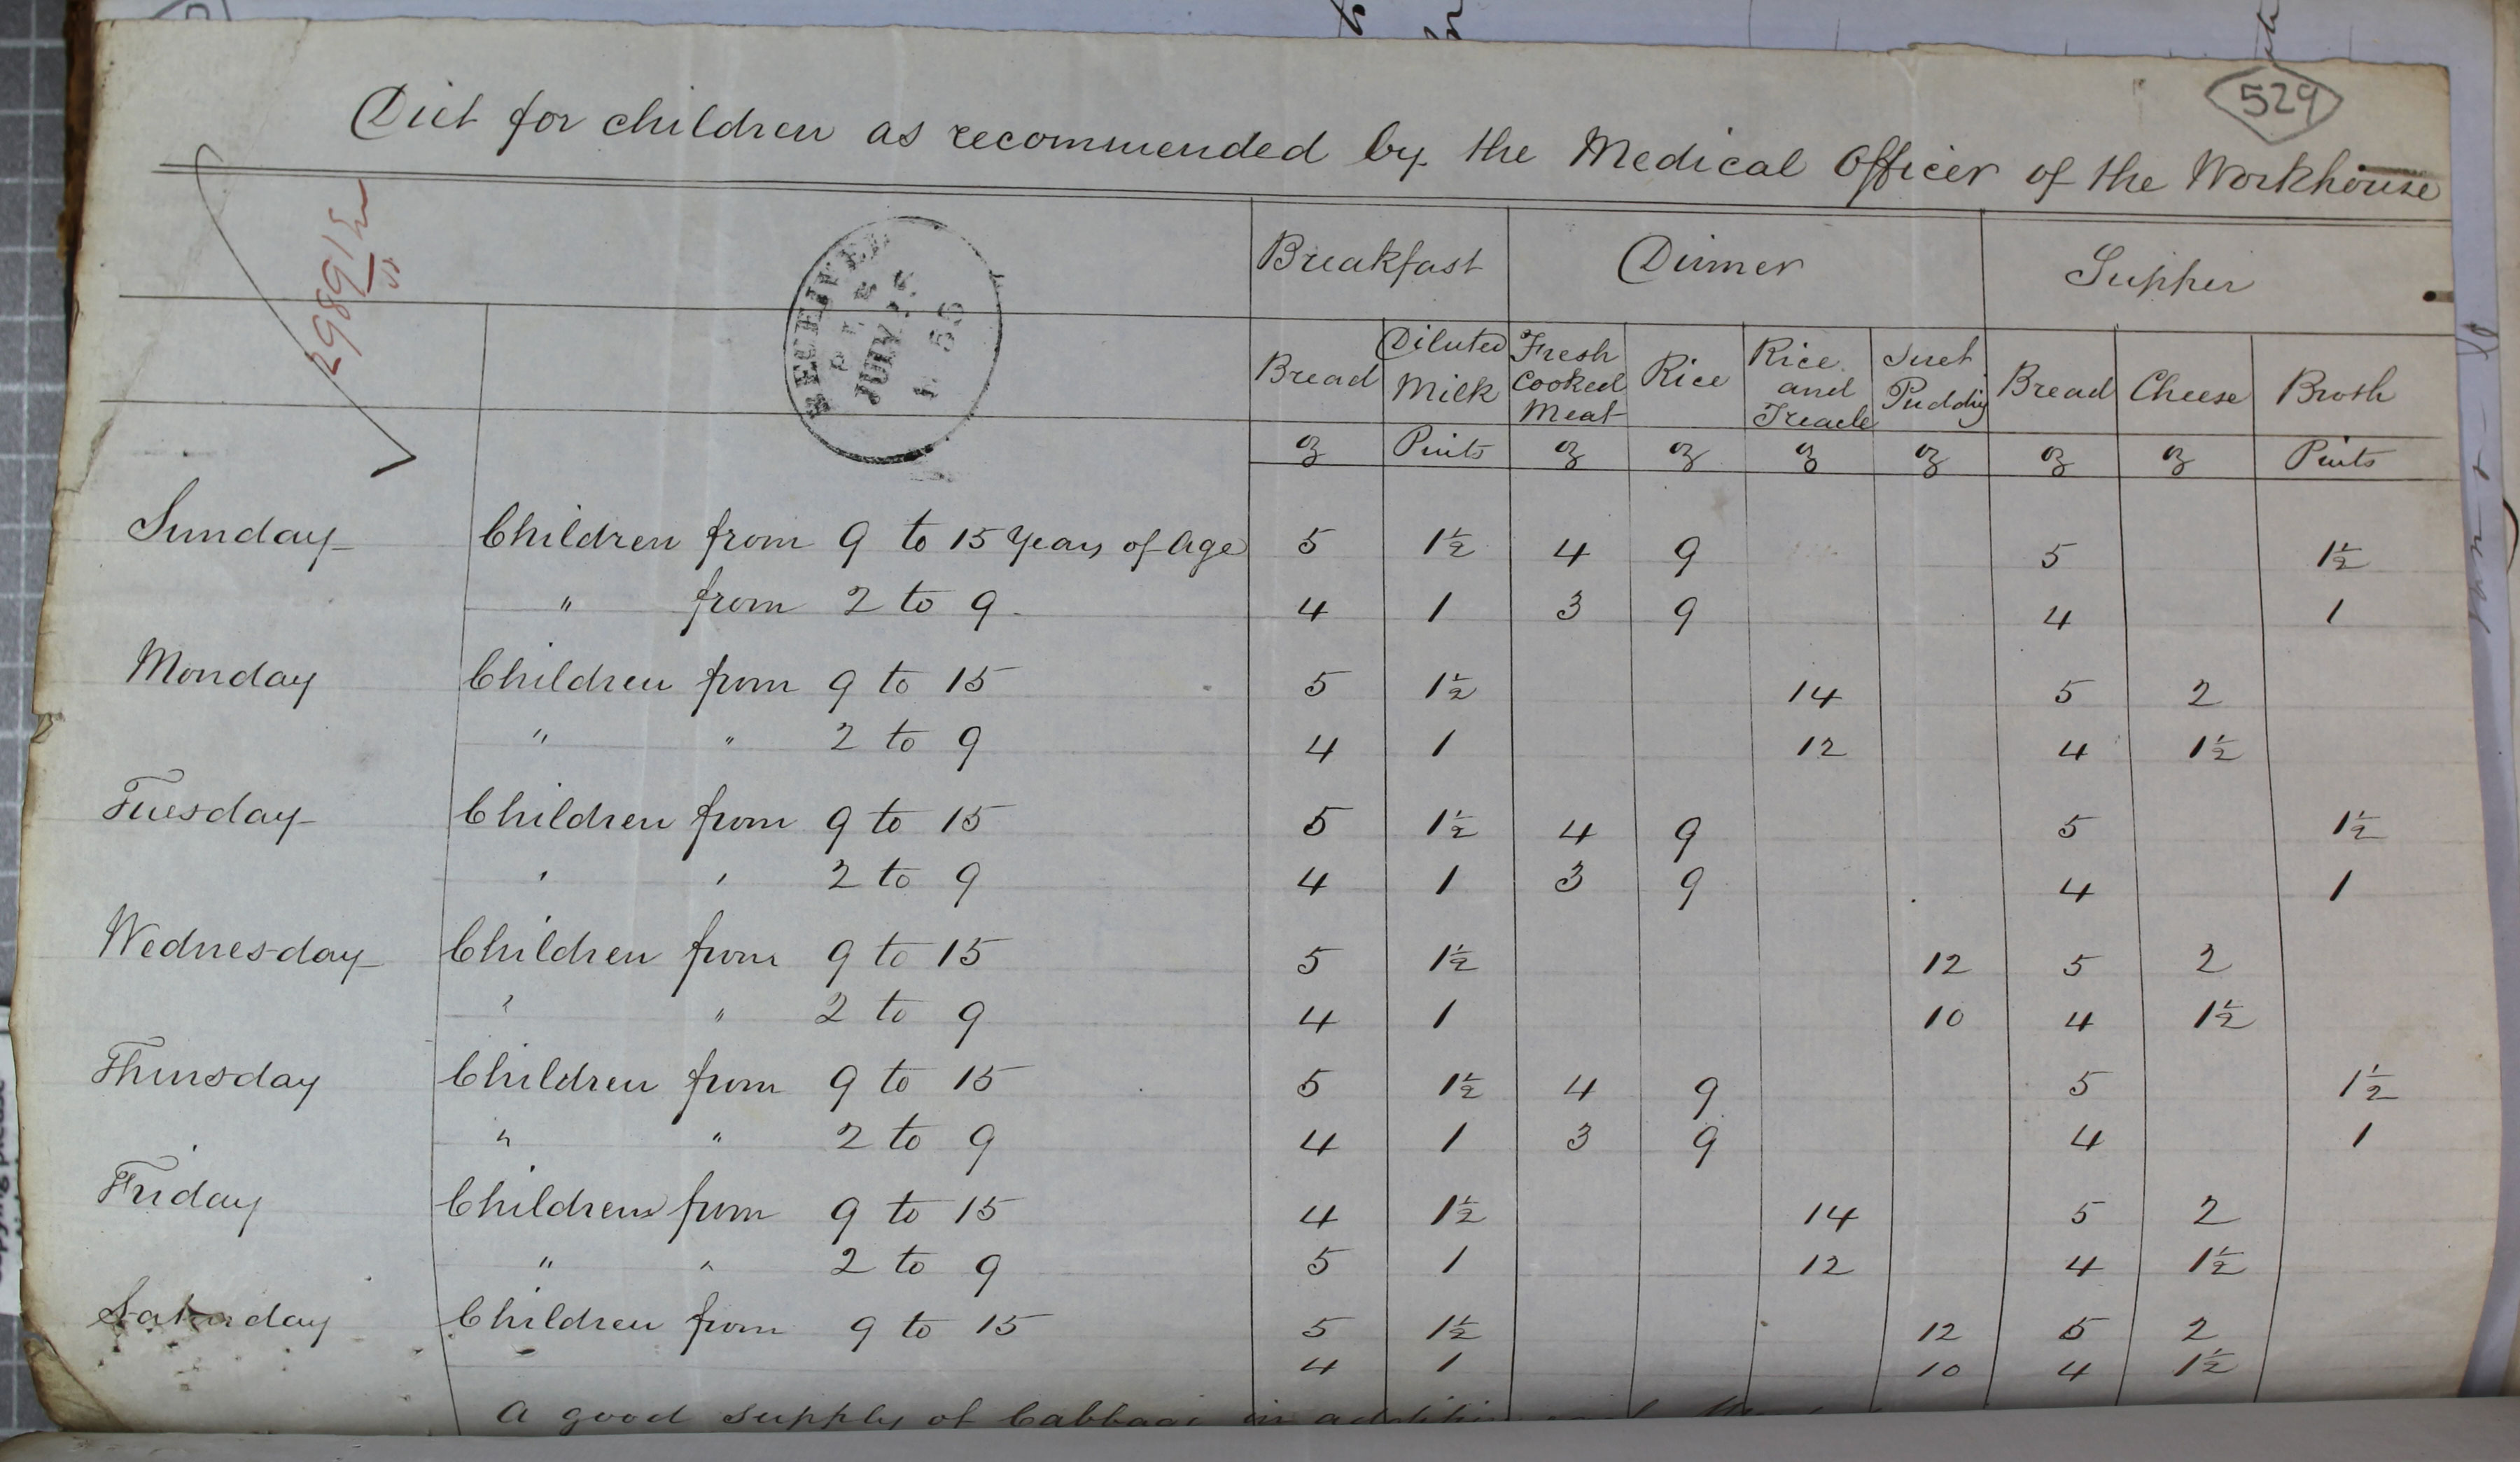 529
Diet for children as recommended by the Medical Officer of the Workhouse
29891
RECEIVED
JULY
Breakfast Dinner Supper
Bread Diluted Milk Fresh Cooked Meat Rice Rice and Treacle Suet Pudding Bread Cheese Broth
oz Pints oz oz oz oz oz oz Pints
Sunday Children from 9 to 15 Years of Age 5 1½ 4 9 5 1½
" from 2 to 9 4 1 3 9 4 1
Monday Children from 9 to 15 5 1½ 14 5 2
" " 2 to 9 4 1 12 4 1½
Tuesday Children from 9 to 15 5 1½ 4 9 5 1½
" " 2 to 9 4 1 3 9 4 1
Wednesday Children from 9 to 15 5 1½ 12 5 2
" " 2 to 9 4 1 10 4 1½
Thursday Children from 9 to 15 5 1½ 4 9 5 1½
" " 2 to 9 4 1 3 9 4 1
Friday Children from 9 to 15 4 1½ 14 5 2
" " 2 to 9 5 1 12 4 1½
Saturday Children from 9 to 15 5 1½ 12 5 2
4 1 10 4 1½
A good supply of Cabbage in addition